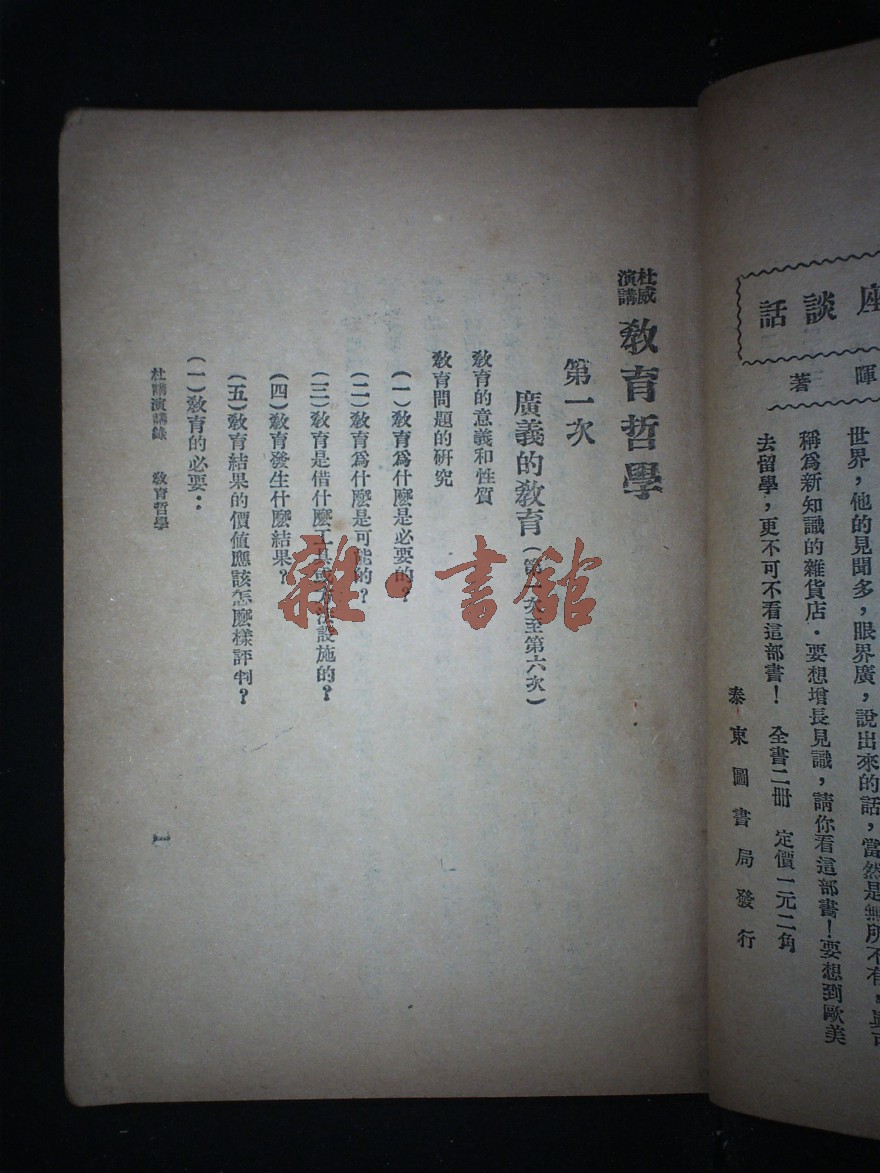 座談話
暉著
世界，他的見聞多，眼界廣，說出來的話，當然是無所不有，
稱爲新知識的雜貨店．要想增長見識，請你看這部書！要想到歐美
去留學，更不可不看這部書！ 全書二冊 定價一元二角
泰東圖書局發行
杜威演講 教育哲學
第一次
廣義的教育（第一次至第六次）
教育的意義和性質
教育問題的研究
（一）教育爲什麼是必要的？
（二）教育爲什麼是可能的？
（三）教育是借什麼工具或方法設施的？
（四）教育發生什麼結果？
（五）教育結果的價值應該怎麼樣評判？
（一）教育的必要：
杜講演講錄 教育哲學
一
雜·書館